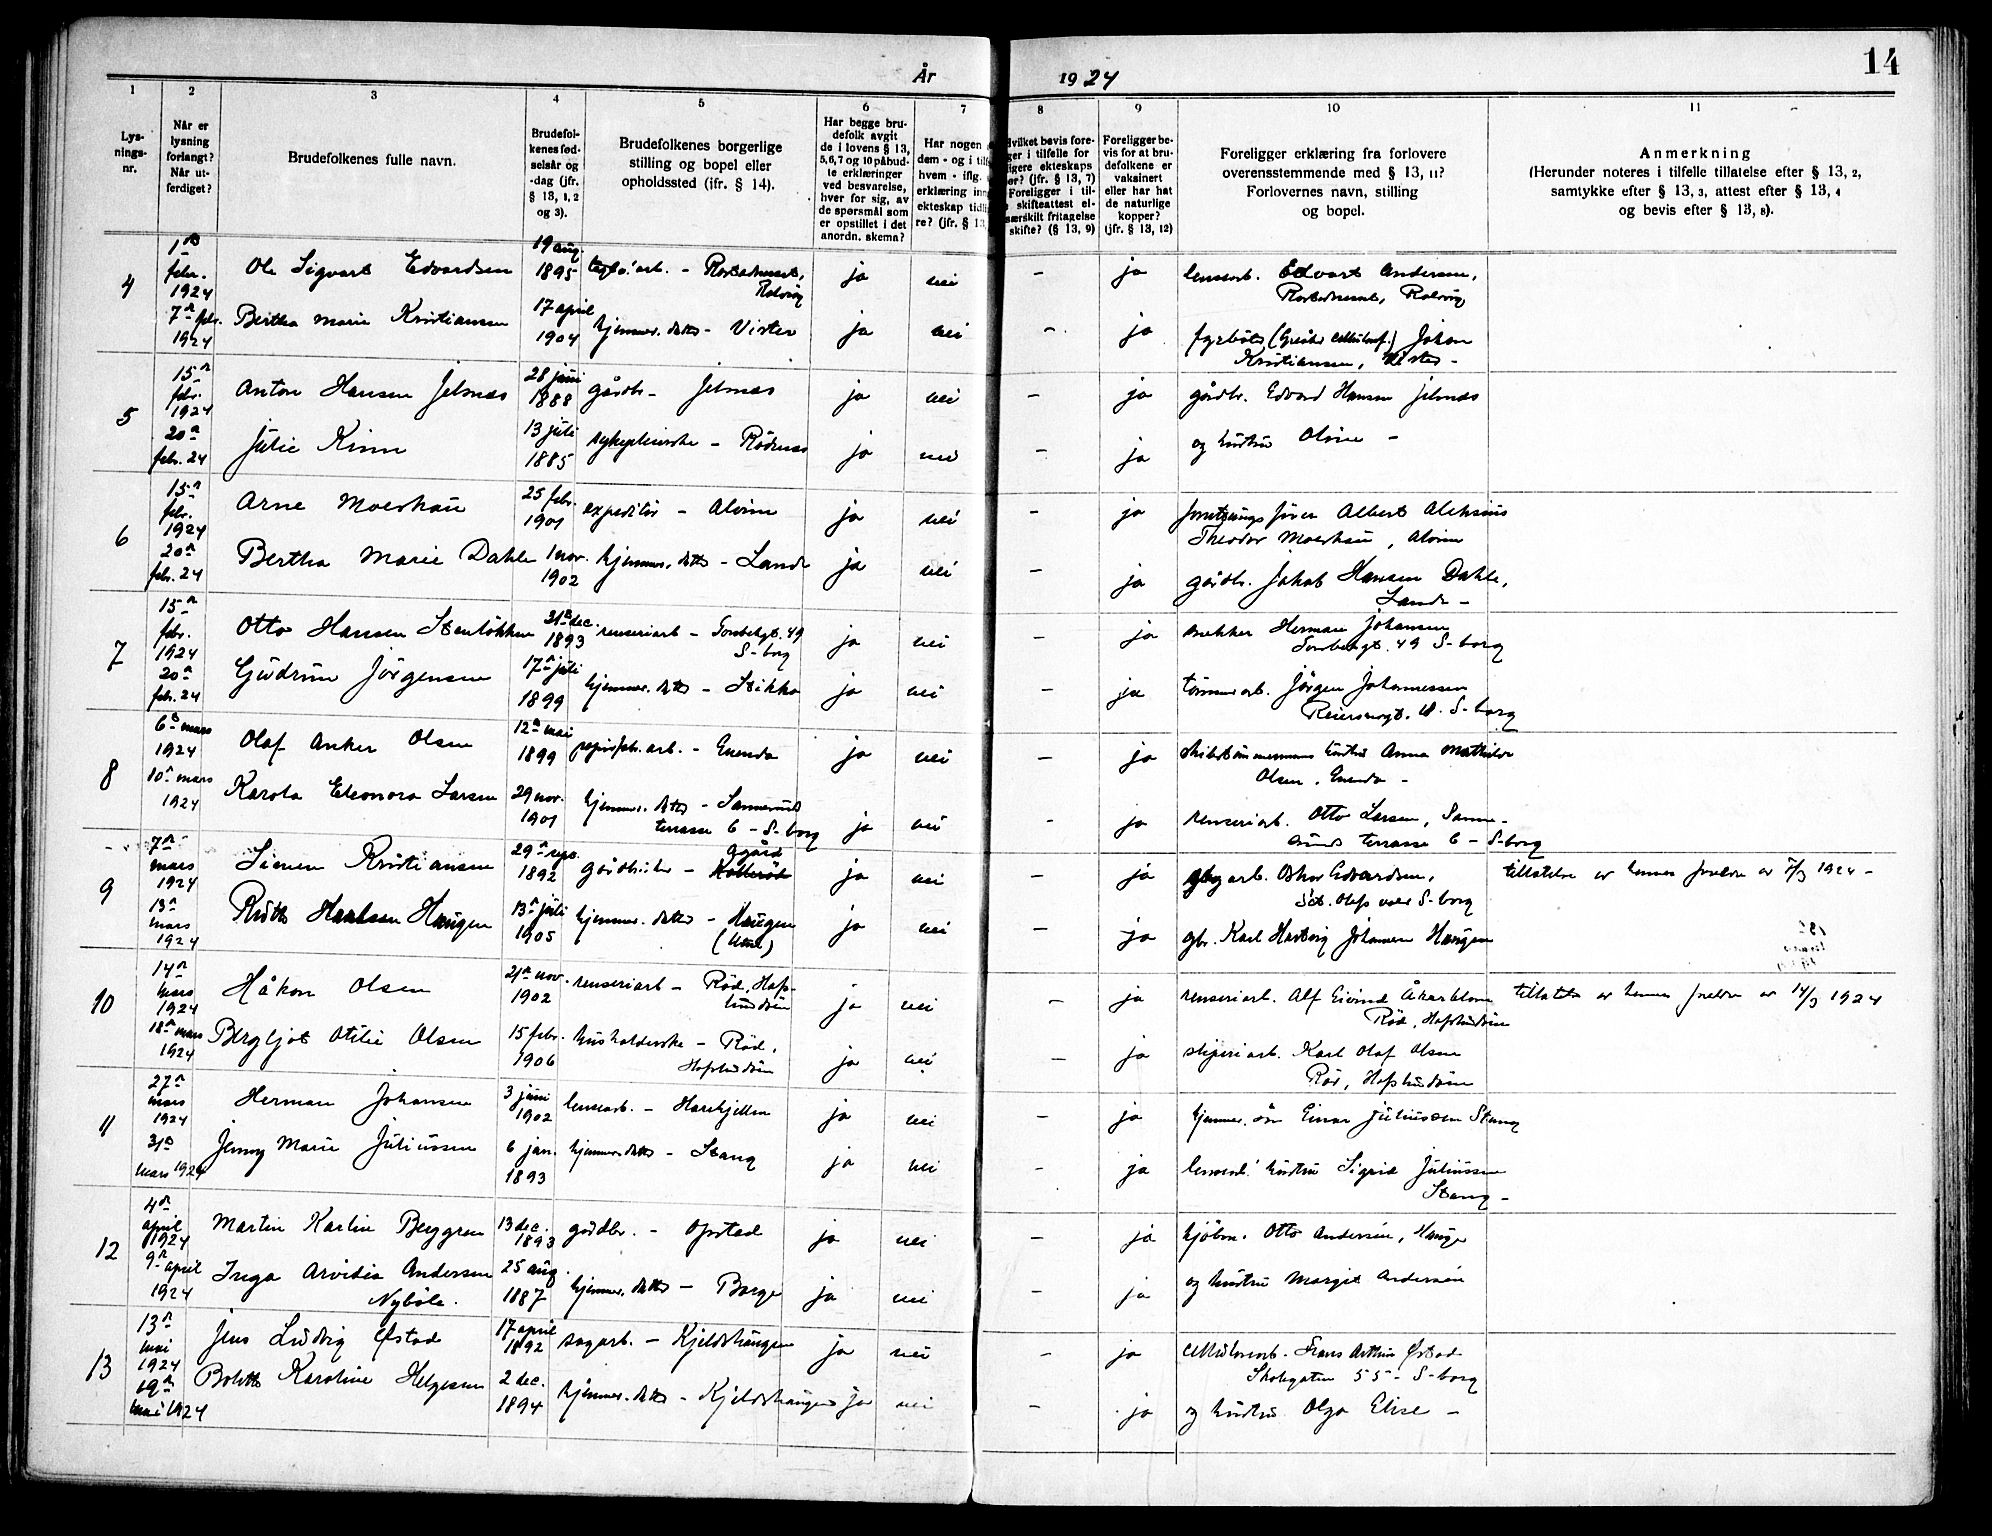 År 1924
14
1 2 3 4 5 6 7 8 9 10 11
Lys-
nings-
nr.
Når er
lysning
forlangt?
Når ut-
ferdiget?
Brudefolkenes fulle navn.
Brudefol-
kenes fød-
selsår og
-dag (jfr.
§ 13, 1, 2
og 3).
Brudefolkenes borgerlige
stilling og bopel eller
opholdssted (ifr. § 14).
Har begge bru-
defolk avgit
de i lovens § 13,
5,6,7 og 10 påbud-
te erklæringer
ved besvarelse,
hver for sig, av
de spørsmål som
er opstillet i det
anordn. skema?
Har nogen
dem - og i tilf
hvem - iflg.
erklæring inn
ekteskap tidl
re? (jfr. § 13,
Hvilket bevis fore-
ger i tilfelle for
ligere ekteskaps
er? (jfr. § 13, 7)
Foreligger i til-
skifteattest el-
særskilt fritagelse
skifte? (§ 13, 9)
Foreligger be-
vis for at bru-
defolkene er
vaksinert
eller har hat
de naturlige
kopper?
(jfr. § 13, 12)
Foreligger erklæring fra forlovere
overensstemmende med § 13, 11?
Forlovernes navn, stilling
og bopel.
Anmerkning
(Herunder noteres i tilfelle tillatelse efter § 13, 2,
samtykke efter § 13, 3, attest efter § 13, 4
og bevis efter § 13, 8).
4
1ste febr. 1924 Ole Sigvart Edvardsen 19 aug. 1895 arb. - ja nei - ja lensearb. Edvart Andersen, Rolvsøy
7de febr. 1924 Bertha Marie Kristiansen 17 april 1904 hjemmev. datter - Vister ja nei - ja fyrbøter Johan
Kristiansen, Vister -
5
15de febr. 1924 Anton Hansen Jelsnes 28 juni 1888 gårdbr. - Jelsnes ja nei - ja gårdbr. Edvard Hansen Jelsnes
20de febr. 24 Julie Kinn 13 juli 1885 sykepleierske - Rødenes ja nei - ja og hustru Olvine -
6
15de febr. 1924 Arne Moeskau 25 febr. 1901 expeditør - Alvim ja nei - ja Albert
Theodor Moeskau, Alvim
20de febr. 24 Bertha Marie Dahle 1 nov. 1902 hjemmev. datter - Lande ja nei - ja gårdbr. Jakob Hansen Dahle,
Lande -
7
15de febr. 1924 Otto Hansen 31te dec. 1893 renseriarb. - 49 S-borg ja nei - ja snekker Herman Johansen
49 S-borg
20de febr. 24 Gudrun Jørgensen 17de juli 1899 hjemmev. datter - Stikka ja nei - ja tømmerarb. Jørgen Johannessen
S-borg
8
6te mars 1924 Olaf Anker Olsen 12te mai 1899 papirfabr. arb. - Enenda ja nei - ja skibstømmermanns hustru Anna Mathilde
Olsen, Enenda -
10de mars 1924 Karola Eleonora Larsen 29 nov. 1901 hjemmev. datter - Sannesund
terrasse 6 - S-borg ja nei - ja renseriarb. Otto Larsen, Sanne-
sunds terrasse 6 - S-borg
9
7de mars 1924 Kristiansen 29de 1892 ja nei - ja arb. Oskar Edvardsen,
Sct. Olafs vold S-borg tillatelse av hennes foreldre av 7/3 1924 -
13de mars 1924 Ruth Haugen 13de juli 1905 hjemmev. datter - Haugen ja nei - ja gbr. Karl Hartvig Johansen Haugen
10
14de mars 1924 Håkon Olsen 21de nov. 1902 renseriarb. - Rød, Hafslundsøen ja nei - ja renseriarb. Alf Eivind Åkerblom
Rød, Hafslundsøen tillatelse av hennes foreldre av 14/3 1924
18de mars 1924 Bergljot Otilie Olsen 15 febr. 1906 husholderske - Rød,
Hafslundsøen ja nei - ja sliperiarb. Karl Olaf Olsen
Rød, Hafslundsøen
11
27de mars 1924 Herman Johansen 3 juni 1902 lensearb. - Harekjellen ja nei - ja hjemmev. søn Einar Juliussen Stang
31te mars 1924 Jenny Marie Juliussen 6 jan. 1893 hjemmev. datter - Stang ja nei - ja lensearb. hustru Sigrid Juliussen
Stang -
12
4de april 1924 Martin Karlin Berggren 13 dec. 1893 gårdbr. - Opstad ja nei - ja Otto Andersen, Hauge
9de april 1924 Inga Arvidia Andersen
Nybøle. 25 aug. 1887 hjemmev. datter - Borge ja nei - ja og hustru Margit Andersen
13
13de mai 1924 Jens Ludvig Østad 17 april 1892 sagarb. - Kjeldshaugen ja nei - ja cellulosearb. Hans Arthur Østad
Skolegaten 55 - S-borg
19de mai 1924 Bolette Karoline Helgesen 2 dec. 1894 hjemmev. datter - Kjeldshaugen ja nei - ja og hustru Olga Elise -